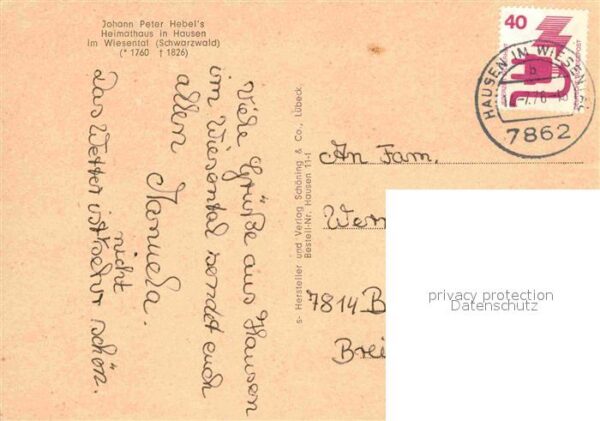 Johann Peter Hebel's
Heimathaus in Hausen
im Wiesental (Schwarzwald)
(* 1760 † 1826)
Viele Grüße aus Hausen
im Wiesental sendet euch
allen
Manuela.
Das Wetter ist sehr schön.
nicht
s- Hersteller und Verlag Schöning & Co., Lübeck
Bestell-Nr. Hausen 11-f
40
HAUSEN IM WIESENTAL
b
7862
An Fam.
7814 B
Brei
privacy protection
Datenschutz